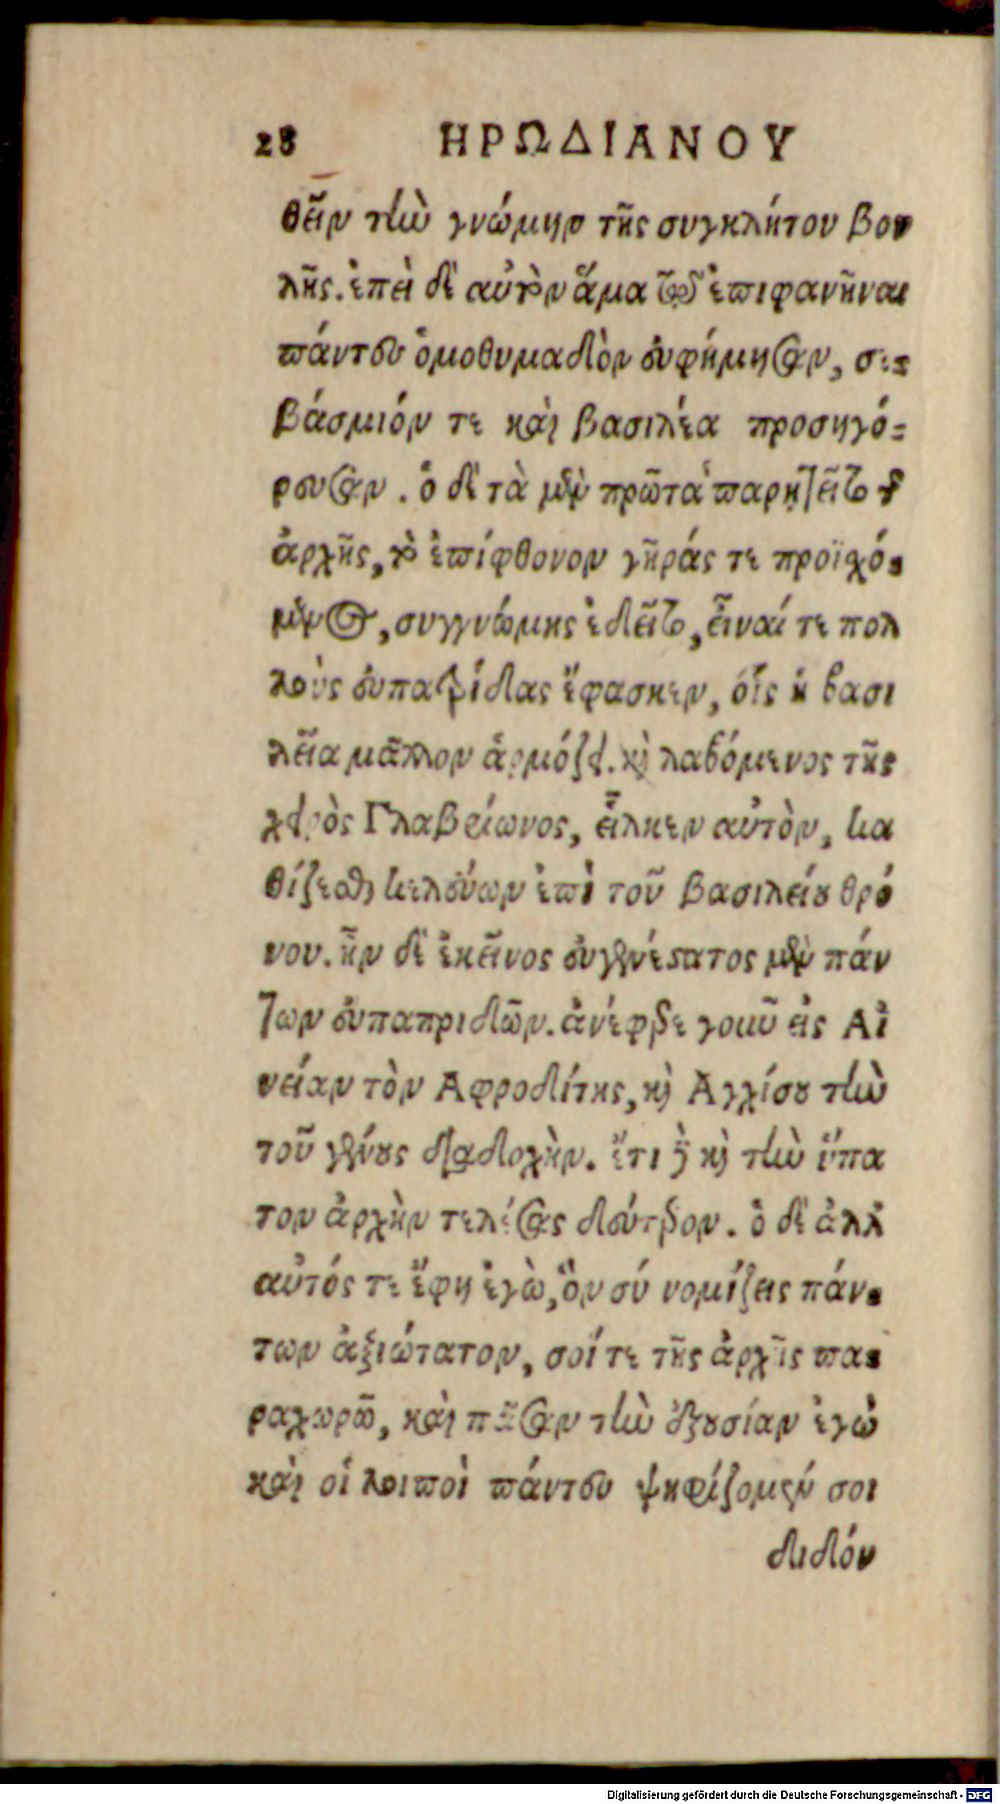 28 ΗΡΩΔΙΑΝΟΥ
θεῖν τὴν γνώμην τῆς συγκλήτου βου
λῆς. ἐπεὶ δὲ αὐτὸν ἅμα τῷ ἐπιφανῆναι
πάντες ὁμοθυμαδὸν εὐφήμησαν, σε-
βάσμιόν τε καὶ βασιλέα προσηγό-
ρευσαν. ὁ δὲ τὰ μὲν πρῶτα παρῃτεῖτο τ
ἀρχῆς, τὸ ἐπίφθονον γῆράς τε προϊχό-
μενος, συγγνώμης ἐδεῖτο, εἶναί τε πολ
λοὺς εὐπατρίδας ἔφασκεν, οἷς ἡ βασι
λεία μᾶλλον ἁρμόζει. καὶ λαβόμενος τῆς
χειρὸς Γλαβρίωνος, εἷλκεν αὐτὸν, κα
θίζεσθαι κελεύων ἐπὶ τοῦ βασιλείου θρό
νου. ἦν δὲ ἐκεῖνος εὐγενέστατος μὲν πάν
των εὐπατριδῶν. ἀνέφερε γοιιῦ εἰς Αἰ
νείαν τὸν Ἀφροδίτης, καὶ Ἀγχίσου τὴν
τοῦ γένους διαδοχὴν. ἔτι δὲ καὶ τὴν ὕπα
τον ἀρχὴν τελέσας δεύτερον. ὁ δὲ ἀλλ
αὐτός τε ἔφη ἐγὼ, ὃν σύ νομίζεις πάν-
των ἀξιώτατον, σοί τε τῆς ἀρχῆς πα-
ραχωρῶ, καὶ πᾶσαν τὴν ἐξουσίαν ἐγώ
καὶ οἱ λοιποὶ πάντες ψηφίζομέν σοι
διδόν
Digitalisierung gefördert durch die Deutsche Forschungsgemeinschaft - DFG